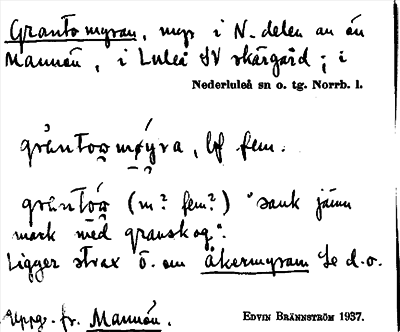 Grantomyran, myr i N-delen av ön
Mannön, i Luleå SV skärgård; i
Nederluleå sn o. tg. Norrb. l.
gråntoarmøyra, bf fem.
gråntóa (m? fem?) "sank jämn
mark med granskog".
Ligger strax ö. om åkermyran Se d.o.
Uppg. fr. Mannön.
EDVIN BRÄNNSTRÖM 1937.